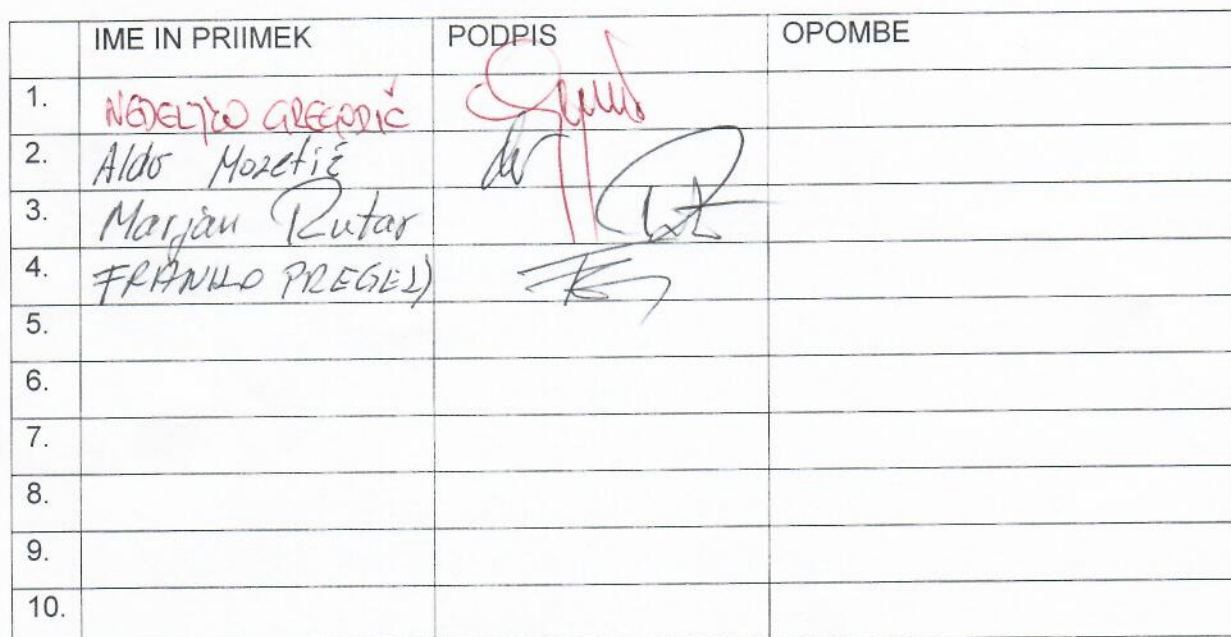 IME IN PRIIMEK PODPIS OPOMBE
1. NEDELJKO GREGORIČ
2. Aldo Mozetič
3. Marjan Rutar
4. FRANKO PREGELJ
5.
6.
7.
8.
9.
10.